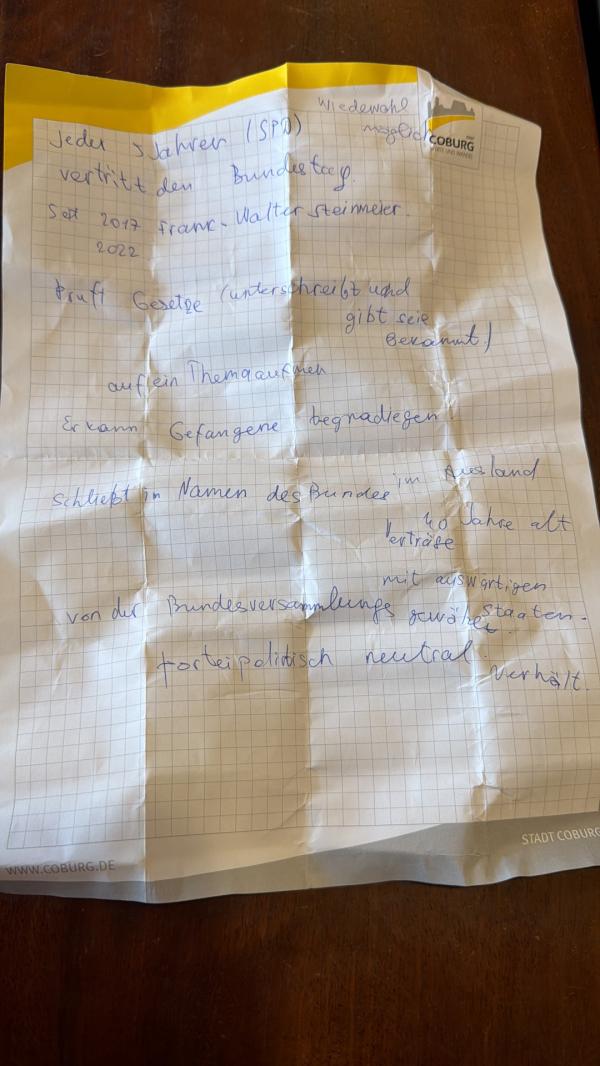 Wiedewahl
möglich
COBURG
WERTE UND WANDEL
Jeder 5 Jahren (SPD)
vertritt den Bundestag.
Seit 2017 Frank-Walter Steinmeier.
2022
Pruft Gesetze (unterschreibt und
gibt seie
bekannt)
auf ein Thema aufmeh
Er kann Gefangene begnadiegen
schließt in Namen des Bundes im Ausland
40 Jahre alt
Verträge
mit auswärtigen
von der Bundesversammlungs gewählt Staaten.
parteipolitisch neutral.
Verhält.
STADT COBURG
WWW.COBURG.DE